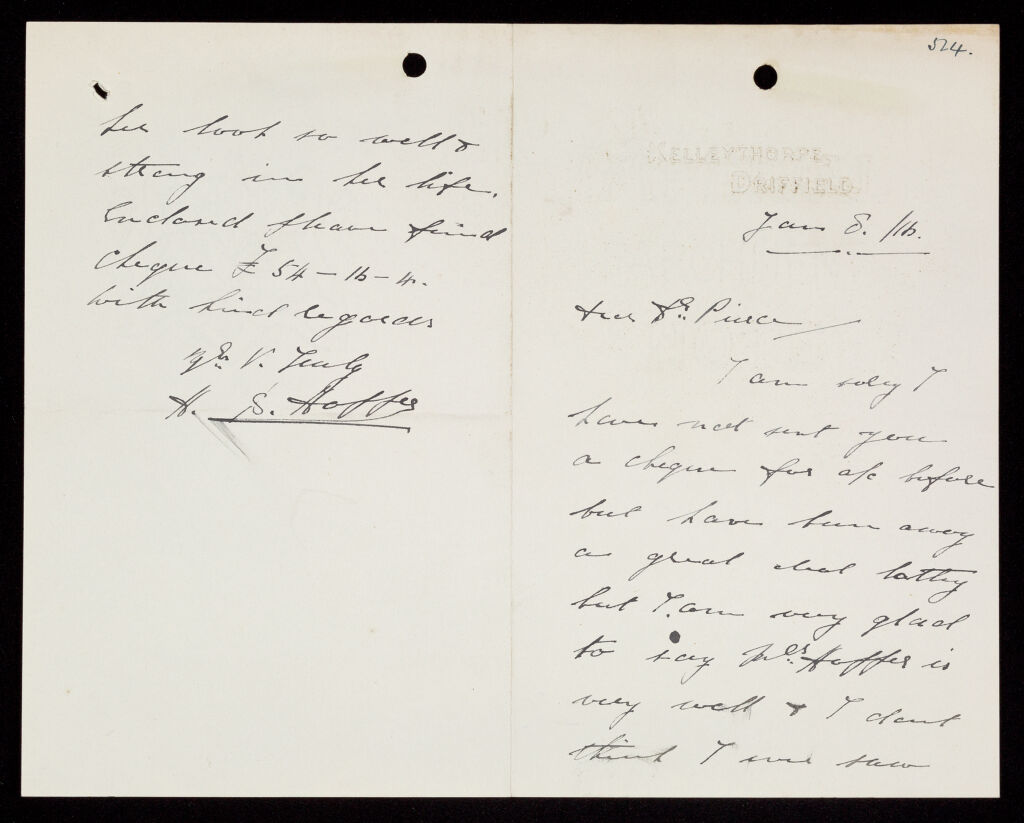 524.
KELLEYTHORPE,
DRIFFIELD.
Jan 8. /16.
Dear Dr. Pierce
I am sorry I
have not sent you
a cheque for a/c before
but have been away
a great deal lattly
but I.am very glad
to say Mrs. Hopper is
very well & I dont
think I ever saw
her look so well &
strong in her life.
Enclosed please find
cheque £ 54-16-4.
with kind regards
Yrs V. Truly
H. S. Hopper